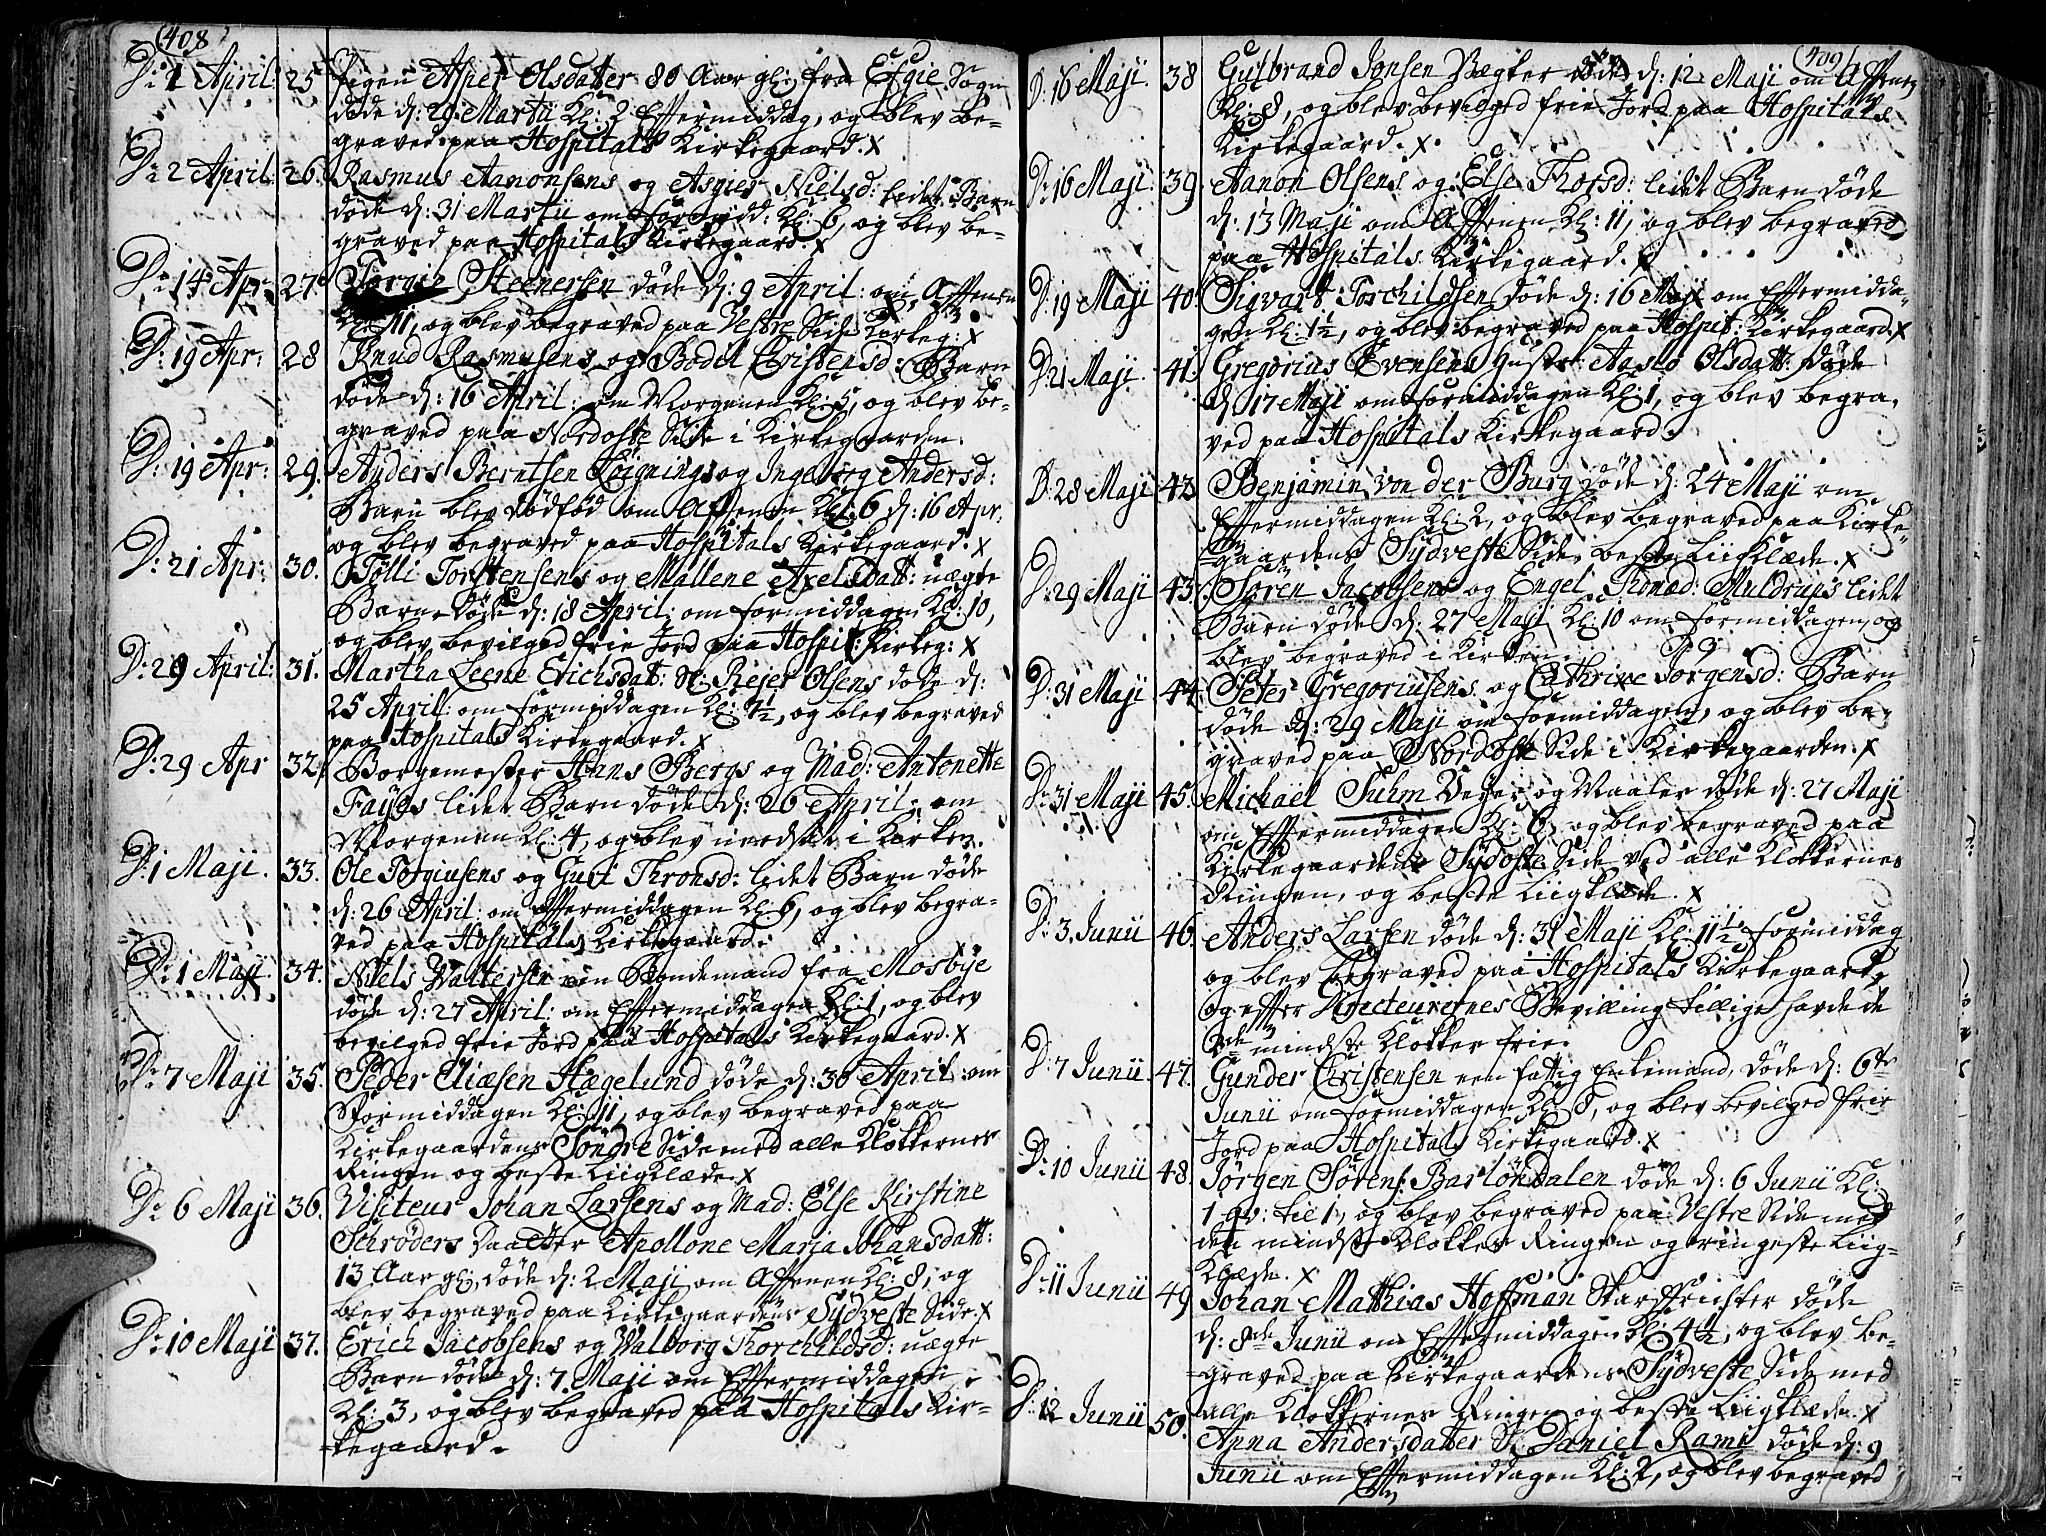 408
D: 1 April: 25 Pigen Asper Olsdatter 80 Aar gl: fra Efgie Sogn
døde d: 29 Martii Kl: 2 Effermiddag, og blev be-
graved paa Hospitals Kirkegaard. X
D: 2 April: 26. Rasmus Aanonsens og Asgier Nielsd: lidet Barn
døde d: 31 Martii om formidd: Kl: 6, og blev be-
graved paa Hospitals Kirkegaard X
D: 14 Apr 27 Torgier Steenersen døde d: 9 April: om Afftenen
Kl: 11, og blev begraved paa Vestre Side Kirkeg: X
D: 19 Apr: 28 Knud Rasmusens og Bodel Cristensd: Barn
døde d: 16 April: om Morgenen Kl: 5, og blev be-
graved paa Nordoste Side i Kirkegaarden.
D: 19 Apr: 29. Anders Berntsen og Ingeborg Andersd:
Barn blev dødfød om Afftenen Kl: 6 d: 16 Apr:
og blev begraved paa Hospitals Kirkegaard. X
D: 21 Apr: 30. Tølli Torstensens og Mallene Axelsdatt: uægte
Barn døde d: 18 April: om formiddagen Kl: 10,
og blev bevilged frie Jord paa Hospit: Kirkeg: X
D: 29 April: 31. Martha Leene Erichsdat: Sl: Rejer Olsens døde d:
25 April: om formiddagen Kl: 7½, og blev begraved
paa Hospitals Kirkegaard. X
D: 29 Apr 32 Borgemester Hans Bergs og Mad: Antonette
Fayes lidet Barn døde d: 26 April: om
Morgenen Kl: 4, og blev nedsat i Kirken.
D: 1 Maji. 33. Ole Torgiusens og Guri Thronsd: lidet Barn døde
d: 26 April: om Effermiddagen Kl: 6, og blev begra-
ved paa Hospitals Kirkegaard.
D: 1 Maji. 34. Niels Waltersen en Bondemand fra Mosbye
døde d: 27 April: om Effermiddagen Kl: 1, og blev
bevilged frie Jord paa Hospitals Kirkegaard. X
D: 7 Maji 35. Peder Eliæsen Hægelund døde d: 30 April: om
Formiddagen Kl: 11, og blev begraved paa
Kirkegaardens Søndre Side med alle Klokkernes
Ringen og beste Liigklæde X
D: 6 Maji 36. Visiteur Johan Larsens og Mad: Else Kirstine
Schrøders Daatter Apollone Maria Johansdatt:
13 Aar gl: døde d: 2 Maji om Afftenen Kl: 8, og
blev begraved paa Kirkegaardens Sydveste Side. X
D: 10 Maji 37. Erich Jacobsens og Walborg Thorchildsd: uægte
Barn døde d: 7 Maji om Effermiddagen
Kl: 3, og blev begraved paa Hospitals Kir-
kegaard.
409
D: 16 Maji. 38 Gulbrand Jonsen Vægter døde d: 12 Maji om Afftenen
Kl: 8, og blev bevilged frie Jord paa Hospitals
Kirkegaard. X
D: 16 Maji 39. Aanon Olsens og Else Thorsd: lidet Barn døde
d: 13 Maji om Afftenen Kl: 11, og blev begraved
paa Hospitals Kirkegaard.
D: 19 Maji 40 Sigvart Torchildsen døde d: 16 Maji om Effermidda-
gen Kl: 1½, og blev begraved paa Hospit: Kirkegaard X
D: 21 Maji. 41. Gregorius Evensens Hustr: Aaslo Olsdatt: døde
d: 17 Maji om formiddagen Kl: 1, og blev begra-
ved paa Hospitals Kirkegaard.
D: 28 Maji 42 Benjamin von der Burg døde d: 24 Maji om
Effermiddagen Kl: 2, og blev begraved paa Kirke-
gaardens Sydveste Side, beste Liiklæde. X
D: 29 Maji 43. Søren Jacobsens og Engel Thomæd: Muldrups lidet
Barn døde d: 27 Maji Kl: 10 om formiddagen, og
blev begraved i Kirken.
D: 31 Maji 44. Peter Gregoriusens og Cathrine Jørgensd: Barn
døde d: 29 Maji om formiddagen, og blev be-
graved paa Nordoste Side i Kirkegaarden. X
D: 31 Maji 45. Michaël Suhm Vejer og Maaler døde d: 27 Maji
om Effermiddagen Kl: 6, og blev begraved paa
Kirkegaardens Sydoste Side ved alle Klokkernes
Ringen, og beste Liigklæde. X
D: 3 Junii 46. Anders Larsen døde d: 31 Maji Kl: 11½ formiddag
og blev begraved paa Hospitals Kirkegaard,
og effter Directeurernes Bevilling tillige havde de
mindste Klokker frie.
D: 7 Junii 47. Gunder Christensen een fattig Enkemand, døde d: 6te
Junii om formiddagen Kl: 8, og blev bevilged frie
Jord paa Hospitals Kirkegaard. X
D: 10 Junii 48. Jørgen Sørens: Barlöndalen døde d: 6 Junii Kl:
1 qv: til 1, og blev begraved paa Vestre Side med
den mindste Klokkes Ringen og ringeste Liig-
Klæde. X
D: 11 Junii 49 Johan Mathias Hoffman Skarffrichter døde
d: 8de Junii om Effermiddagen Kl: 4½, og blev be-
graved paa Kirkegaardens Sydveste Side med
alle Klokkernes Ringen og beste Liigklæde. X
D: 12 Junii 50. Anna Andersdatter Sl: Daniel Rami døde d: 9
Junii om Effermiddagen Kl: 2, og blev begraved